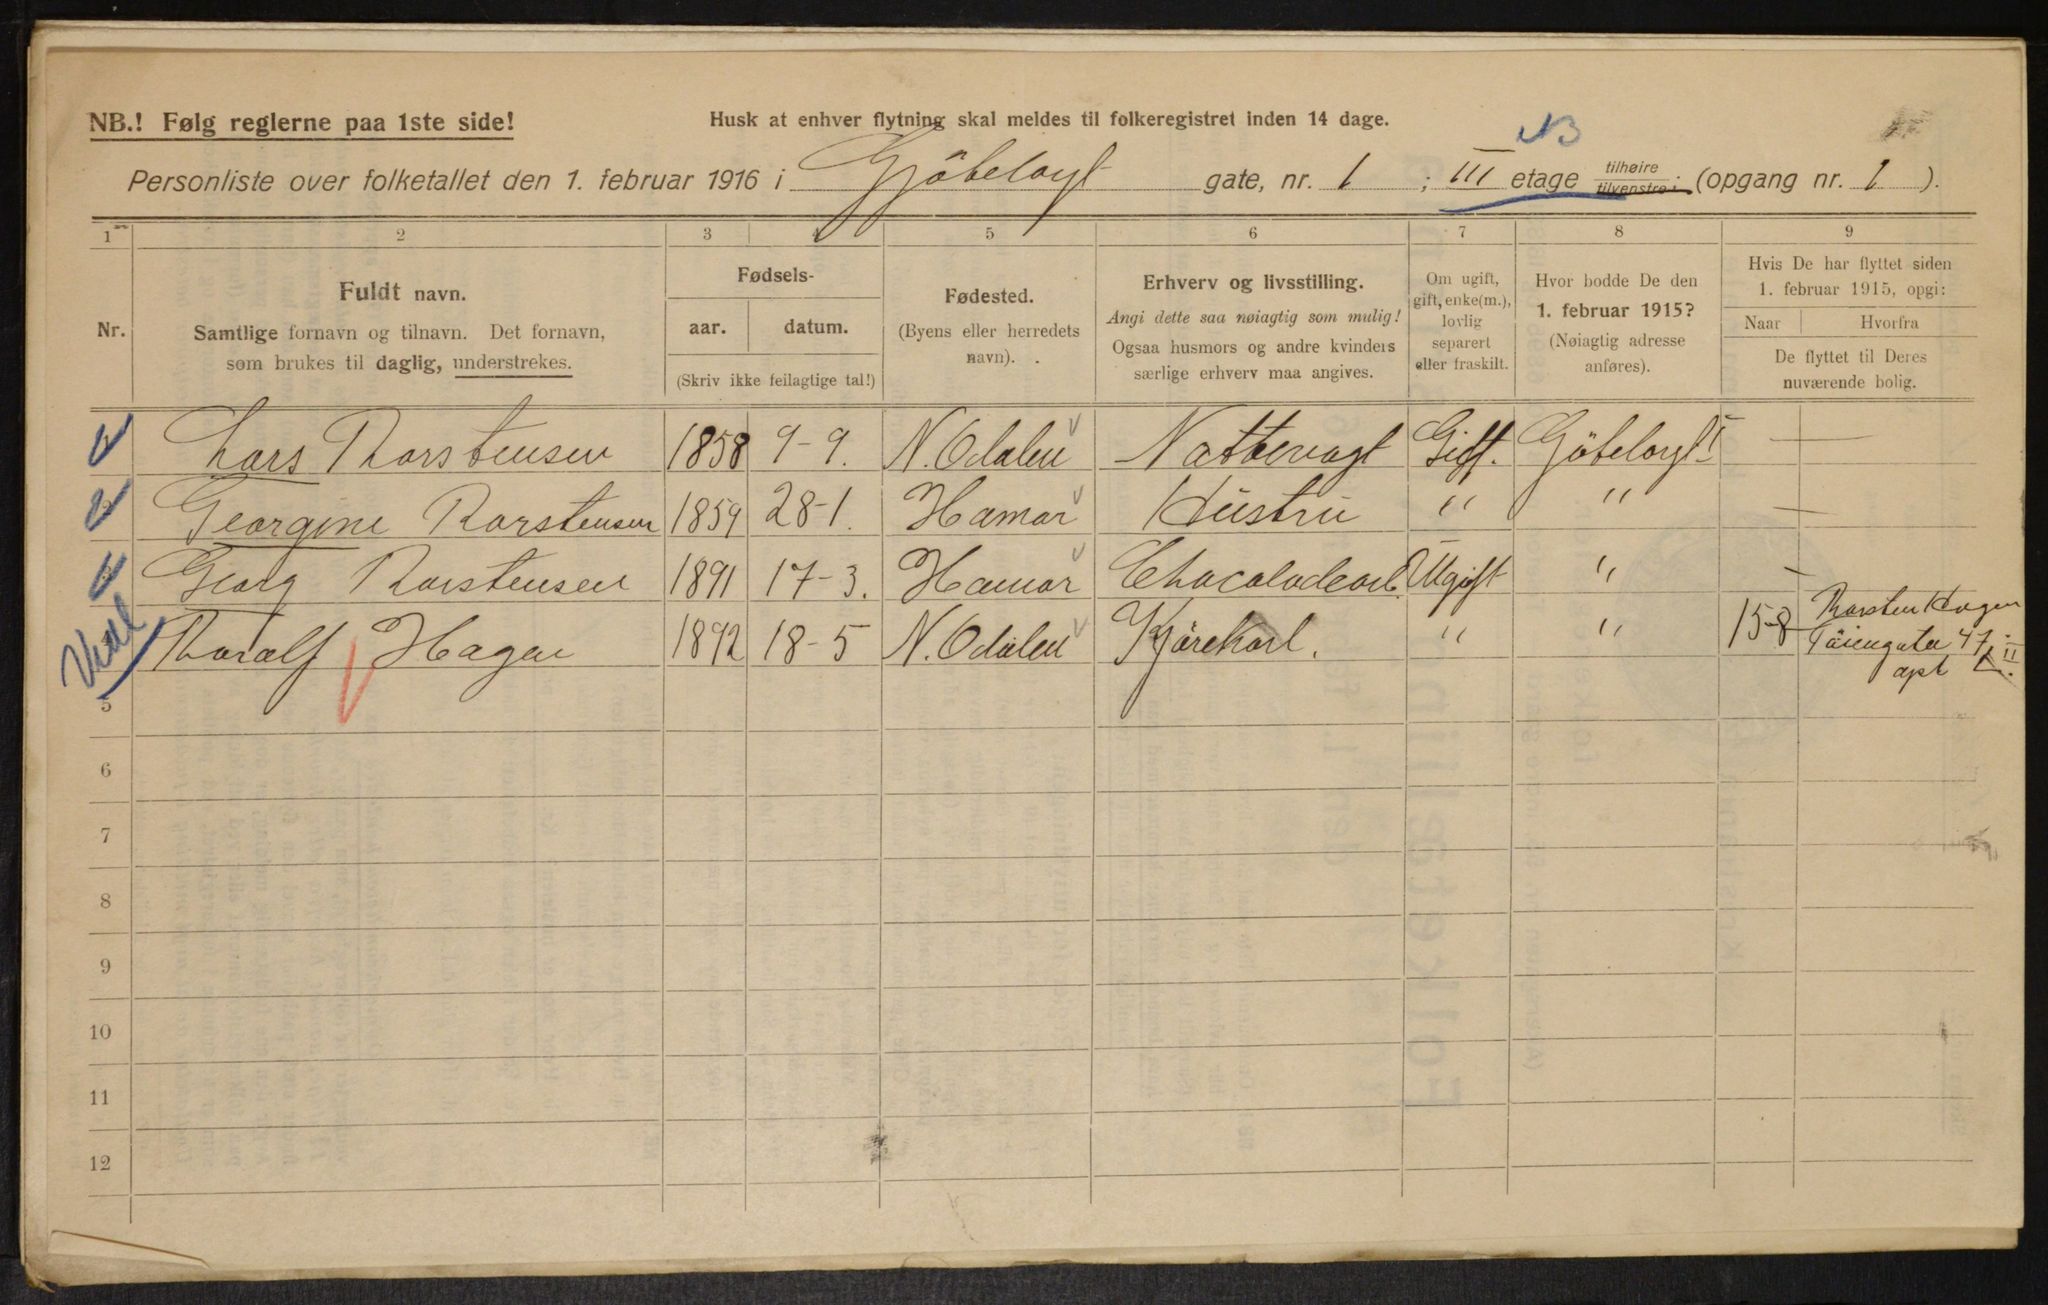 NB.! Følg reglerne paa 1ste side!
Husk at enhver flytning skal meldes til folkeregistret inden 14 dage.
NB
Personliste over folketallet den 1. februar 1916 i Gjöbelogt gate, nr. 1 ; III etage tilhøire tilvenstre. (opgang nr. 1 ).
1 2 3 4 5 6 7 8 9
Nr.
Fuldt navn.
Samtlige fornavn og tilnavn. Det fornavn,
som brukes til daglig, understrekes.
Fødsels-
aar. datum.
(Skriv ikke feilagtige tal!)
Fødested.
(Byens eller herredets
navn).
Erhverv og livsstilling.
Angi dette saa nøiagtig som mulig!
Ogsaa husmors og andre kvinders
særlige erhverv maa angives.
Om ugift,
gift, enke(m.),
lovlig
separert
eller fraskilt.
Hvor bodde De den
1. februar 1915?
(Nøiagtig adresse
anføres).
Hvis De har flyttet siden
1. februar 1915, opgi:
Naar Hvorfra
De flyttet til Deres
nuværende bolig.
Lars Thorstensen 1858 9-9. N. Odalen Nattevagt Gift. Göbelogt 1 —
Georgine Thorstensen 1859 28-1. Hamar Hustru " " —
Georg Thorstensen 1891 17-3. Hamar Chocoladearb. Ugift " —
Thoralf Hagen 1892 18-5 N. Odalen Kjørekarl. " " 15-8 Thorsten Hagen
Töiengata 47 II
opt 1.
5
6
7
8
9
10
11
12